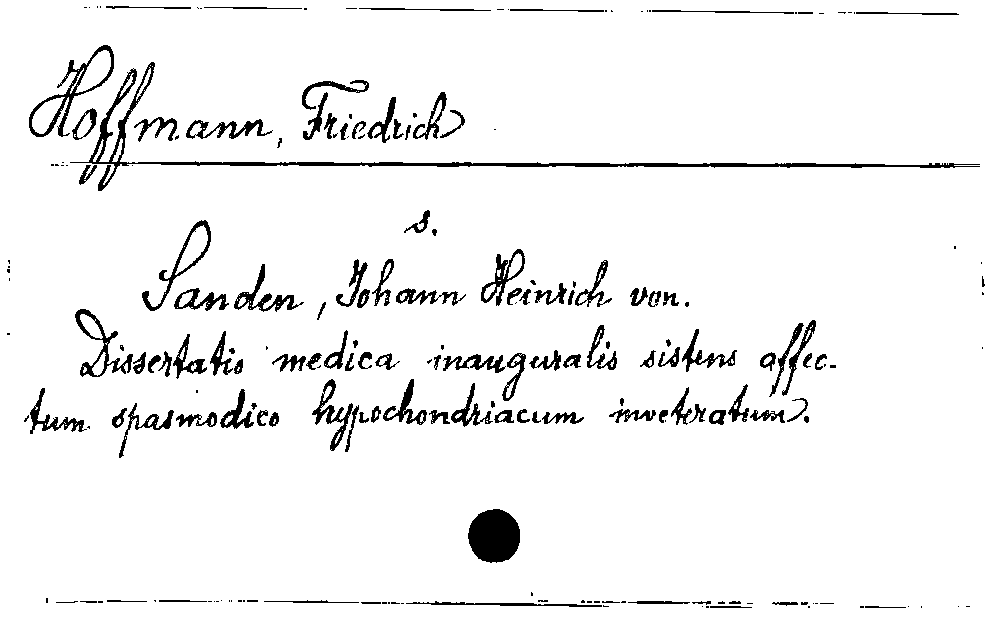 Hoffmann, Friedrich
s.
Sanden, Johann Heinrich von.
Dissertatio medica inauguralis sistens affec-
tum spasmodico hypochondriacum inveteratum.